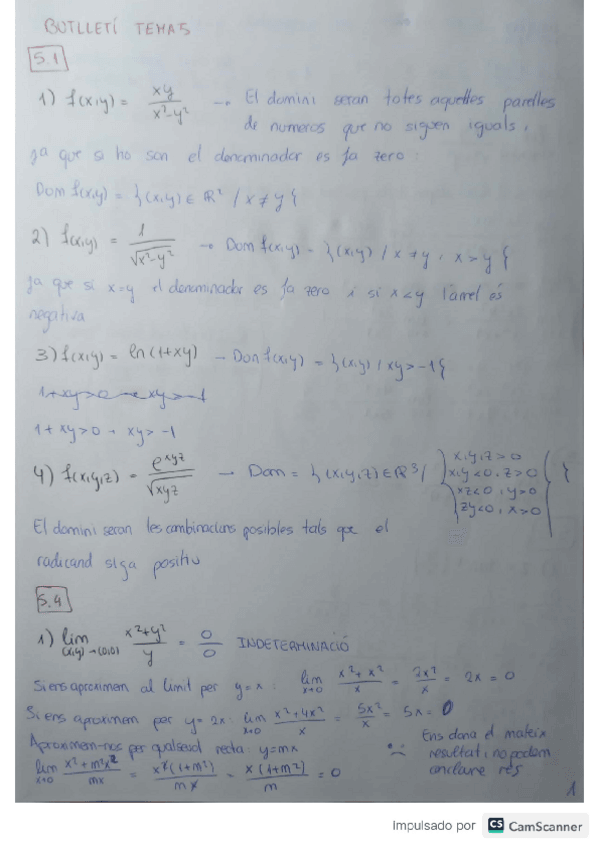 BUTLLETÍ TEMA 5
5.1
1) f(x,y) = xy / x²-y² → El domini seran totes aquelles parelles
de numeros que no siguen iguals,
ja que si ho son el denominador es fa zero:
Dom f(x,y) = }(x,y) ∈ ℝ² / x ≠ y{
2) f(x,y) = 1 / √x²-y² → Dom f(x,y) = }(x,y) / x ≠ y, x > y{
ja que si x=y el denominador es fa zero i si x<y l'arrel és
negativa
3) f(x,y) = ln(1+xy) → Dom f(x,y) = }(x,y) / xy > -1{
1+xy>0 → xy>-1
1+xy>0 → xy>-1
4) f(x,y,z) = e^xyz / √xyz → Dom = }(x,y,z) ∈ ℝ³ /
x,y,z > 0
x,y < 0, z > 0
xz < 0, y > 0
zy < 0, x > 0
{
El domini seran les combinacions posibles tals que el
radicand siga positiu
5.4
1) lim (x,y)→(0,0) x²+y² / y = 0/0 INDETERMINACIÓ
Si ens aproximem al límit per y=x: lim x→0 x²+x² / x = 2x² / x = 2x = 0
Si ens aproximem per y=2x: lim x→0 x²+4x² / x = 5x² / x = 5x = 0
Aproximem-nos per qualsevol recta: y=mx
Ens dona el mateix
resultat i no podem
concloure res
lim x→0 x²+m²x² / mx = x²(1+m²) / mx = x(1+m²) / m = 0
1
Impulsado por CS CamScanner